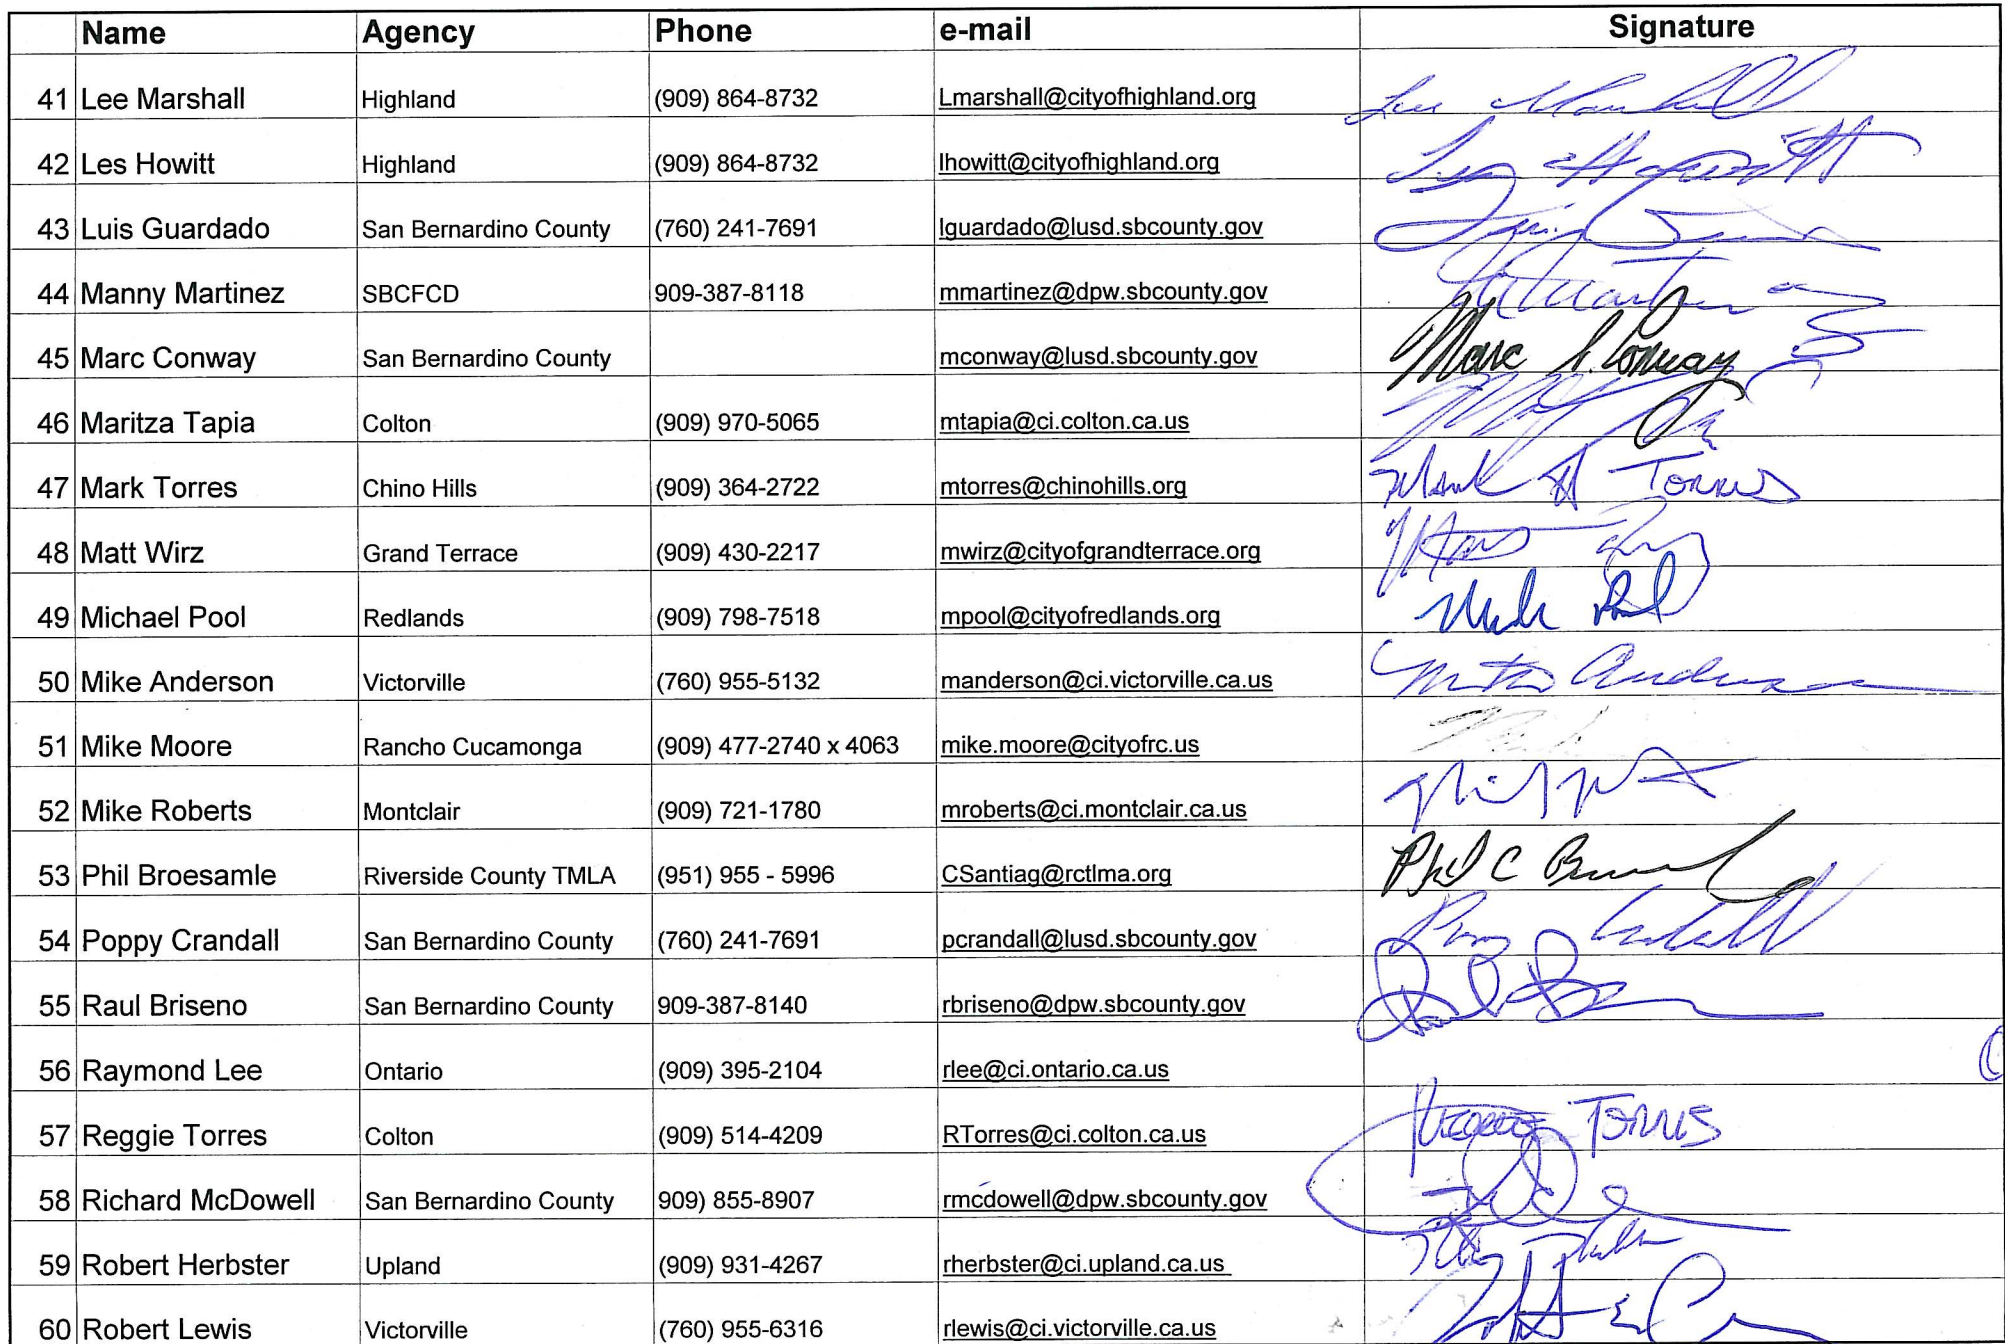 Name Agency Phone e-mail Signature
41 Lee Marshall Highland (909) 864-8732 Lmarshall@cityofhighland.org Lee Marshall
42 Les Howitt Highland (909) 864-8732 lhowitt@cityofhighland.org Les Howitt
43 Luis Guardado San Bernardino County (760) 241-7691 lguardado@lusd.sbcounty.gov
44 Manny Martinez SBCFCD 909-387-8118 mmartinez@dpw.sbcounty.gov
45 Marc Conway San Bernardino County mconway@lusd.sbcounty.gov Marc Conway
46 Maritza Tapia Colton (909) 970-5065 mtapia@ci.colton.ca.us
47 Mark Torres Chino Hills (909) 364-2722 mtorres@chinohills.org Mark A Torres
48 Matt Wirz Grand Terrace (909) 430-2217 mwirz@cityofgrandterrace.org
49 Michael Pool Redlands (909) 798-7518 mpool@cityofredlands.org
50 Mike Anderson Victorville (760) 955-5132 manderson@ci.victorville.ca.us
51 Mike Moore Rancho Cucamonga (909) 477-2740 x 4063 mike.moore@cityofrc.us
52 Mike Roberts Montclair (909) 721-1780 mroberts@ci.montclair.ca.us
53 Phil Broesamle Riverside County TMLA (951) 955 - 5996 CSantiag@rctlma.org
54 Poppy Crandall San Bernardino County (760) 241-7691 pcrandall@lusd.sbcounty.gov
55 Raul Briseno San Bernardino County 909-387-8140 rbriseno@dpw.sbcounty.gov
56 Raymond Lee Ontario (909) 395-2104 rlee@ci.ontario.ca.us
57 Reggie Torres Colton (909) 514-4209 RTorres@ci.colton.ca.us
58 Richard McDowell San Bernardino County 909) 855-8907 rmcdowell@dpw.sbcounty.gov
59 Robert Herbster Upland (909) 931-4267 rherbster@ci.upland.ca.us
60 Robert Lewis Victorville (760) 955-6316 rlewis@ci.victorville.ca.us